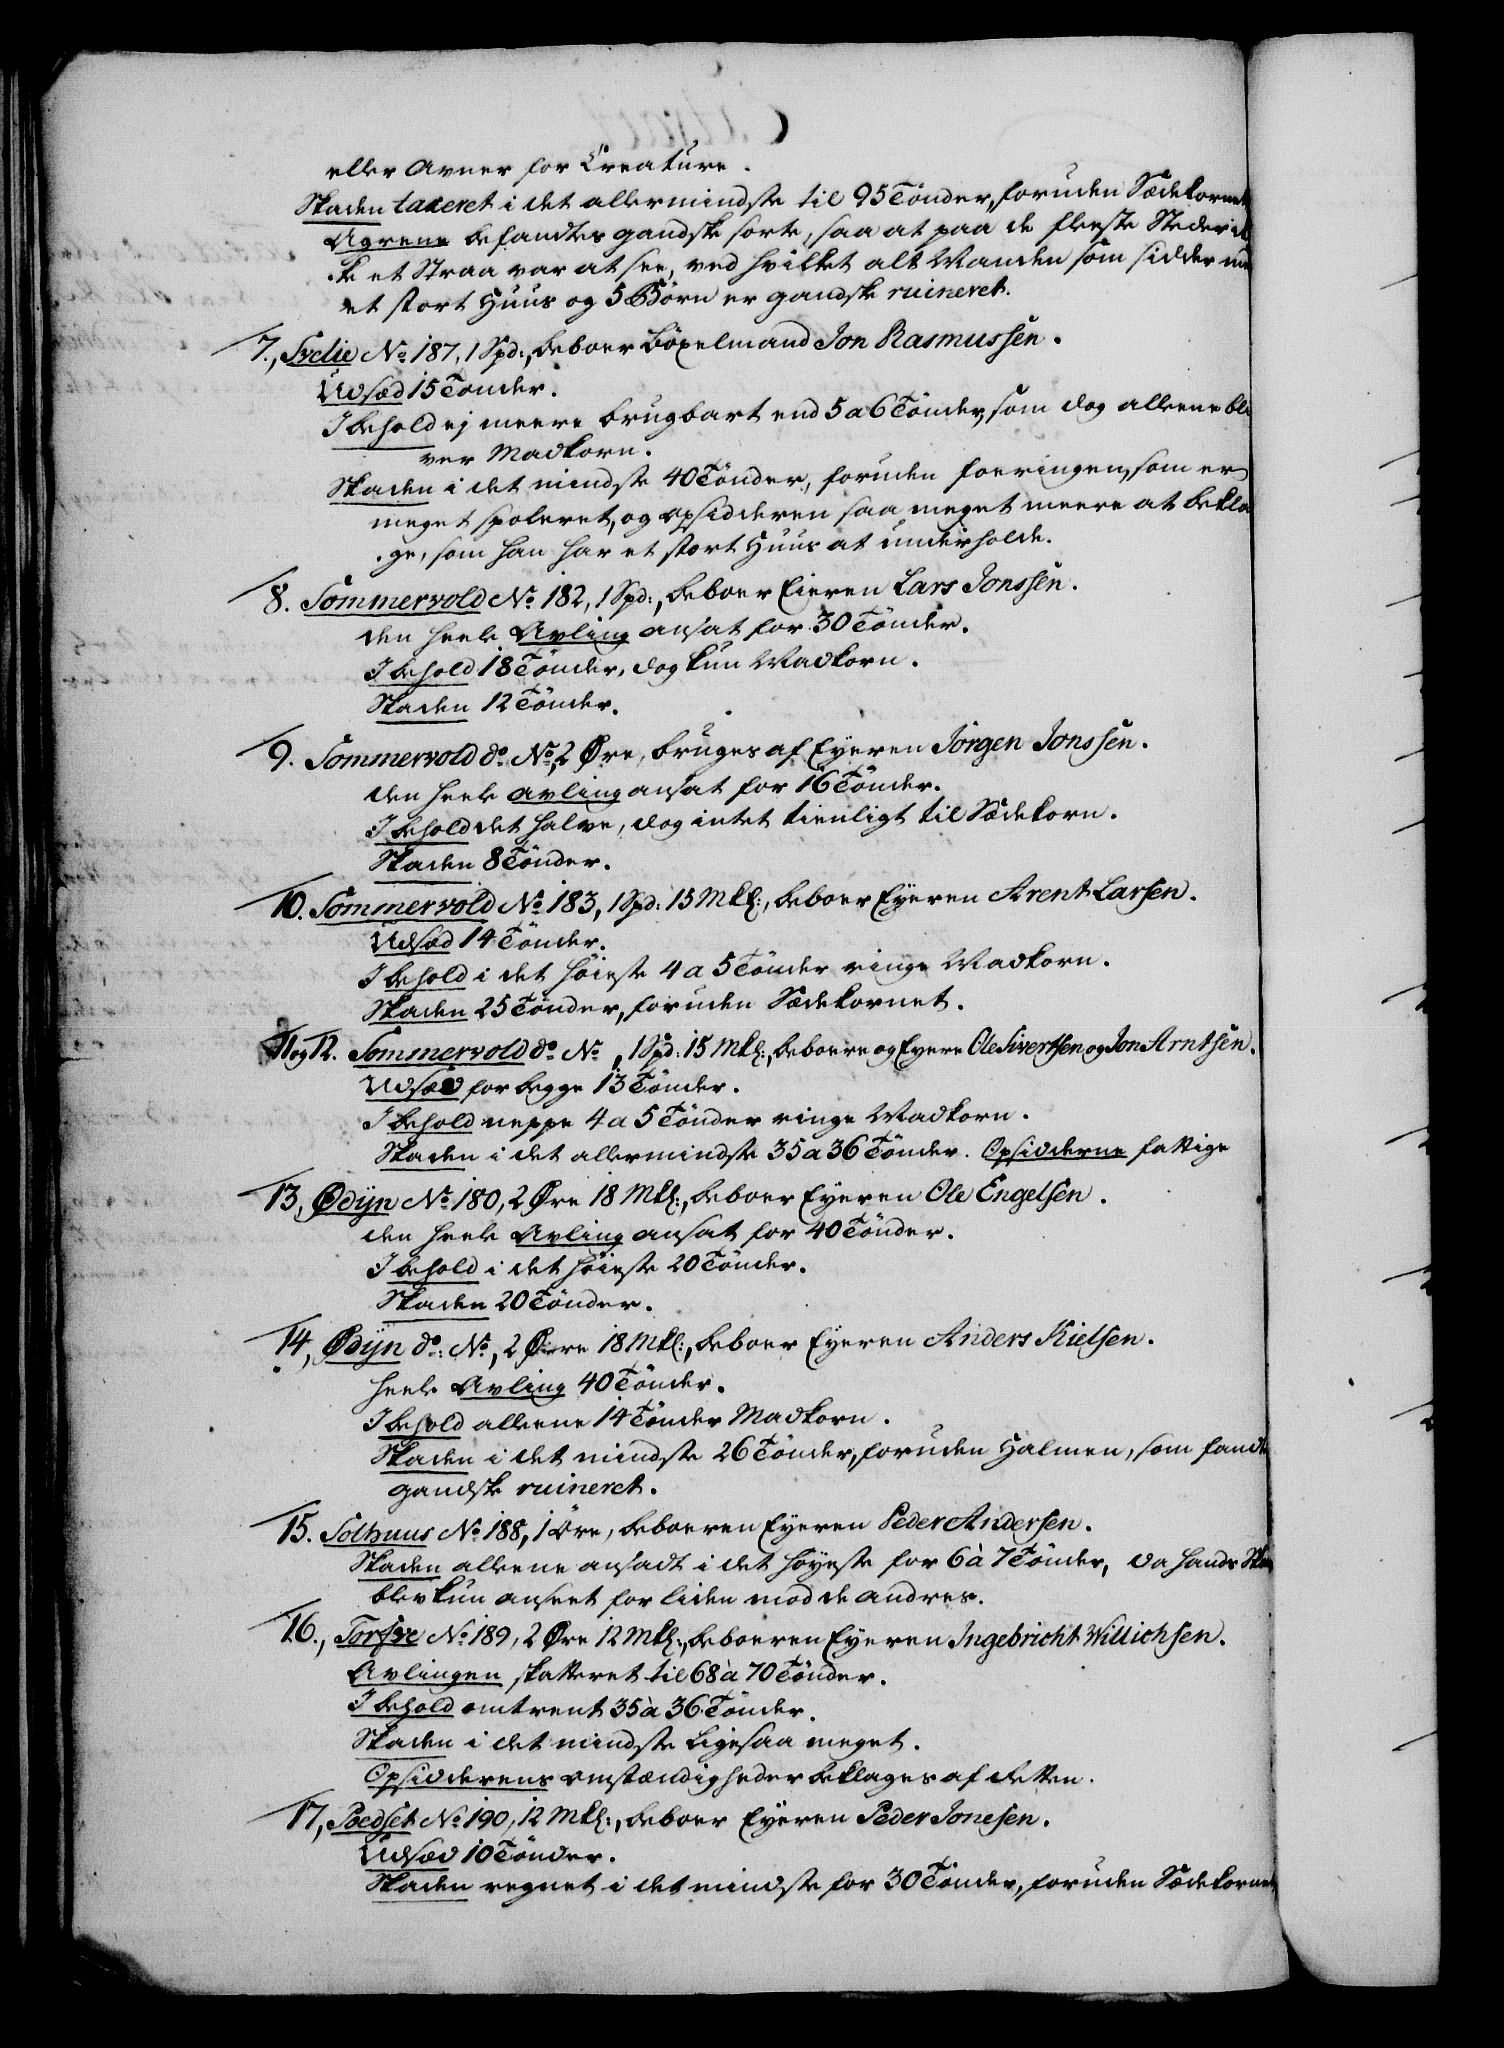 eller Avner for Creature.
Skaden taxeret i det allermindste til 95 Tönder, foruden Sædekornet
Agrene befandtes gandske sorte, saa at paa de fleeste Steder ik
ke et Straa var at see, ved hvilket alt Manden som sidder med
et stort Huus og 5 Börn er gandske ruineret.
7., Svelie No 187, 1 Spd:, beboer Böxelmand Jon Rasmussen.
Udsæd 15 Tønder.
I behold ej meere brugbart end 5 a 6 Tönder, som dog alleene bli
ver Madkorn.
Skaden i det mindste 40 Tönder, foruden foeringen, som er
meget spoleret, og opsidderen saa meget meere at bekla
ge, som han har et stort Huus at underholde.
8. Sommervold No 182, 1 Spd:, beboer Eieren Lars Jonssen.
den heele Avling ansat for 30 Tönder.
I behold 18 Tönder, dog kun Madkorn.
Skaden 12 Tönder.
9. Sommervold do No, 2 Øre, bruges af Eyeren Jörgen Jonssen.
den heele avling ansat for 16 Tönder.
I behold det halve, dog intet tienligt til Sædekorn.
Skaden 8 Tönder.
10. Sommervold No 183, 1 Spd: 15 Mkl:, beboer Eyeren Arent Larsen.
Udsæd 14 Tönder.
I behold i det höieste 4 a 5 Tönder ringe Madkorn.
Skaden 25 Tönder, foruden Sædekornet.
11 og 12. Sommervold do No , 1 Spd: 15 Mkl:, beboere og Eyere Ole Sivertsen og Jon Arntsen.
Udsæd for begge 13 Tönder.
I behold neppe 4 a 5 Tönder ringe Madkorn.
Skaden i det allermindste 35 a 36 Tönder. Opsidderne fattige
13, Ødyn No 180, 2 Øre 18 Mkl:, beboer Eyeren Ole Engelsen.
den heele Avling ansat for 40 Tönder.
I behold i det höieste 20 Tönder.
Skaden 20 Tönder.
14, Ødyn do: No, 2 Øre 18 Mkl:, beboer Eyeren Anders Kielsen.
heele Avling 40 Tönder.
I behold alleene 14 Tönder Madkorn.
Skaden i det mindste 26 Tönder, foruden Halmen, som fandtes
gandske ruineret.
15. Solhuus No 188, 1 Øre, beboeren Eyeren Peder Andersen.
Skaden alleene ansadt i det höyeste for 6 à 7 Tönder, da hands Skade
blev kun anseet for liden mod de andres.
16., Torsve No 189, 2 Øre 12 Mkl:, beboeren Eyeren Ingebricht Willichsen.
Avlingen skatteret til 68 à 70 Tönder.
I behold omtrent 35 à 36 Tönder.
Skaden i det mindste ligesaa meget.
Opsidderens omstændigheder beklages af Retten.
17, Soedset No 190, 12 Mkl:, beboer Eyeren Peder Jonesen.
Udsæd 10 Tönder.
Skaden regnet i det mindste for 30 Tönder, foruden Sædekornet